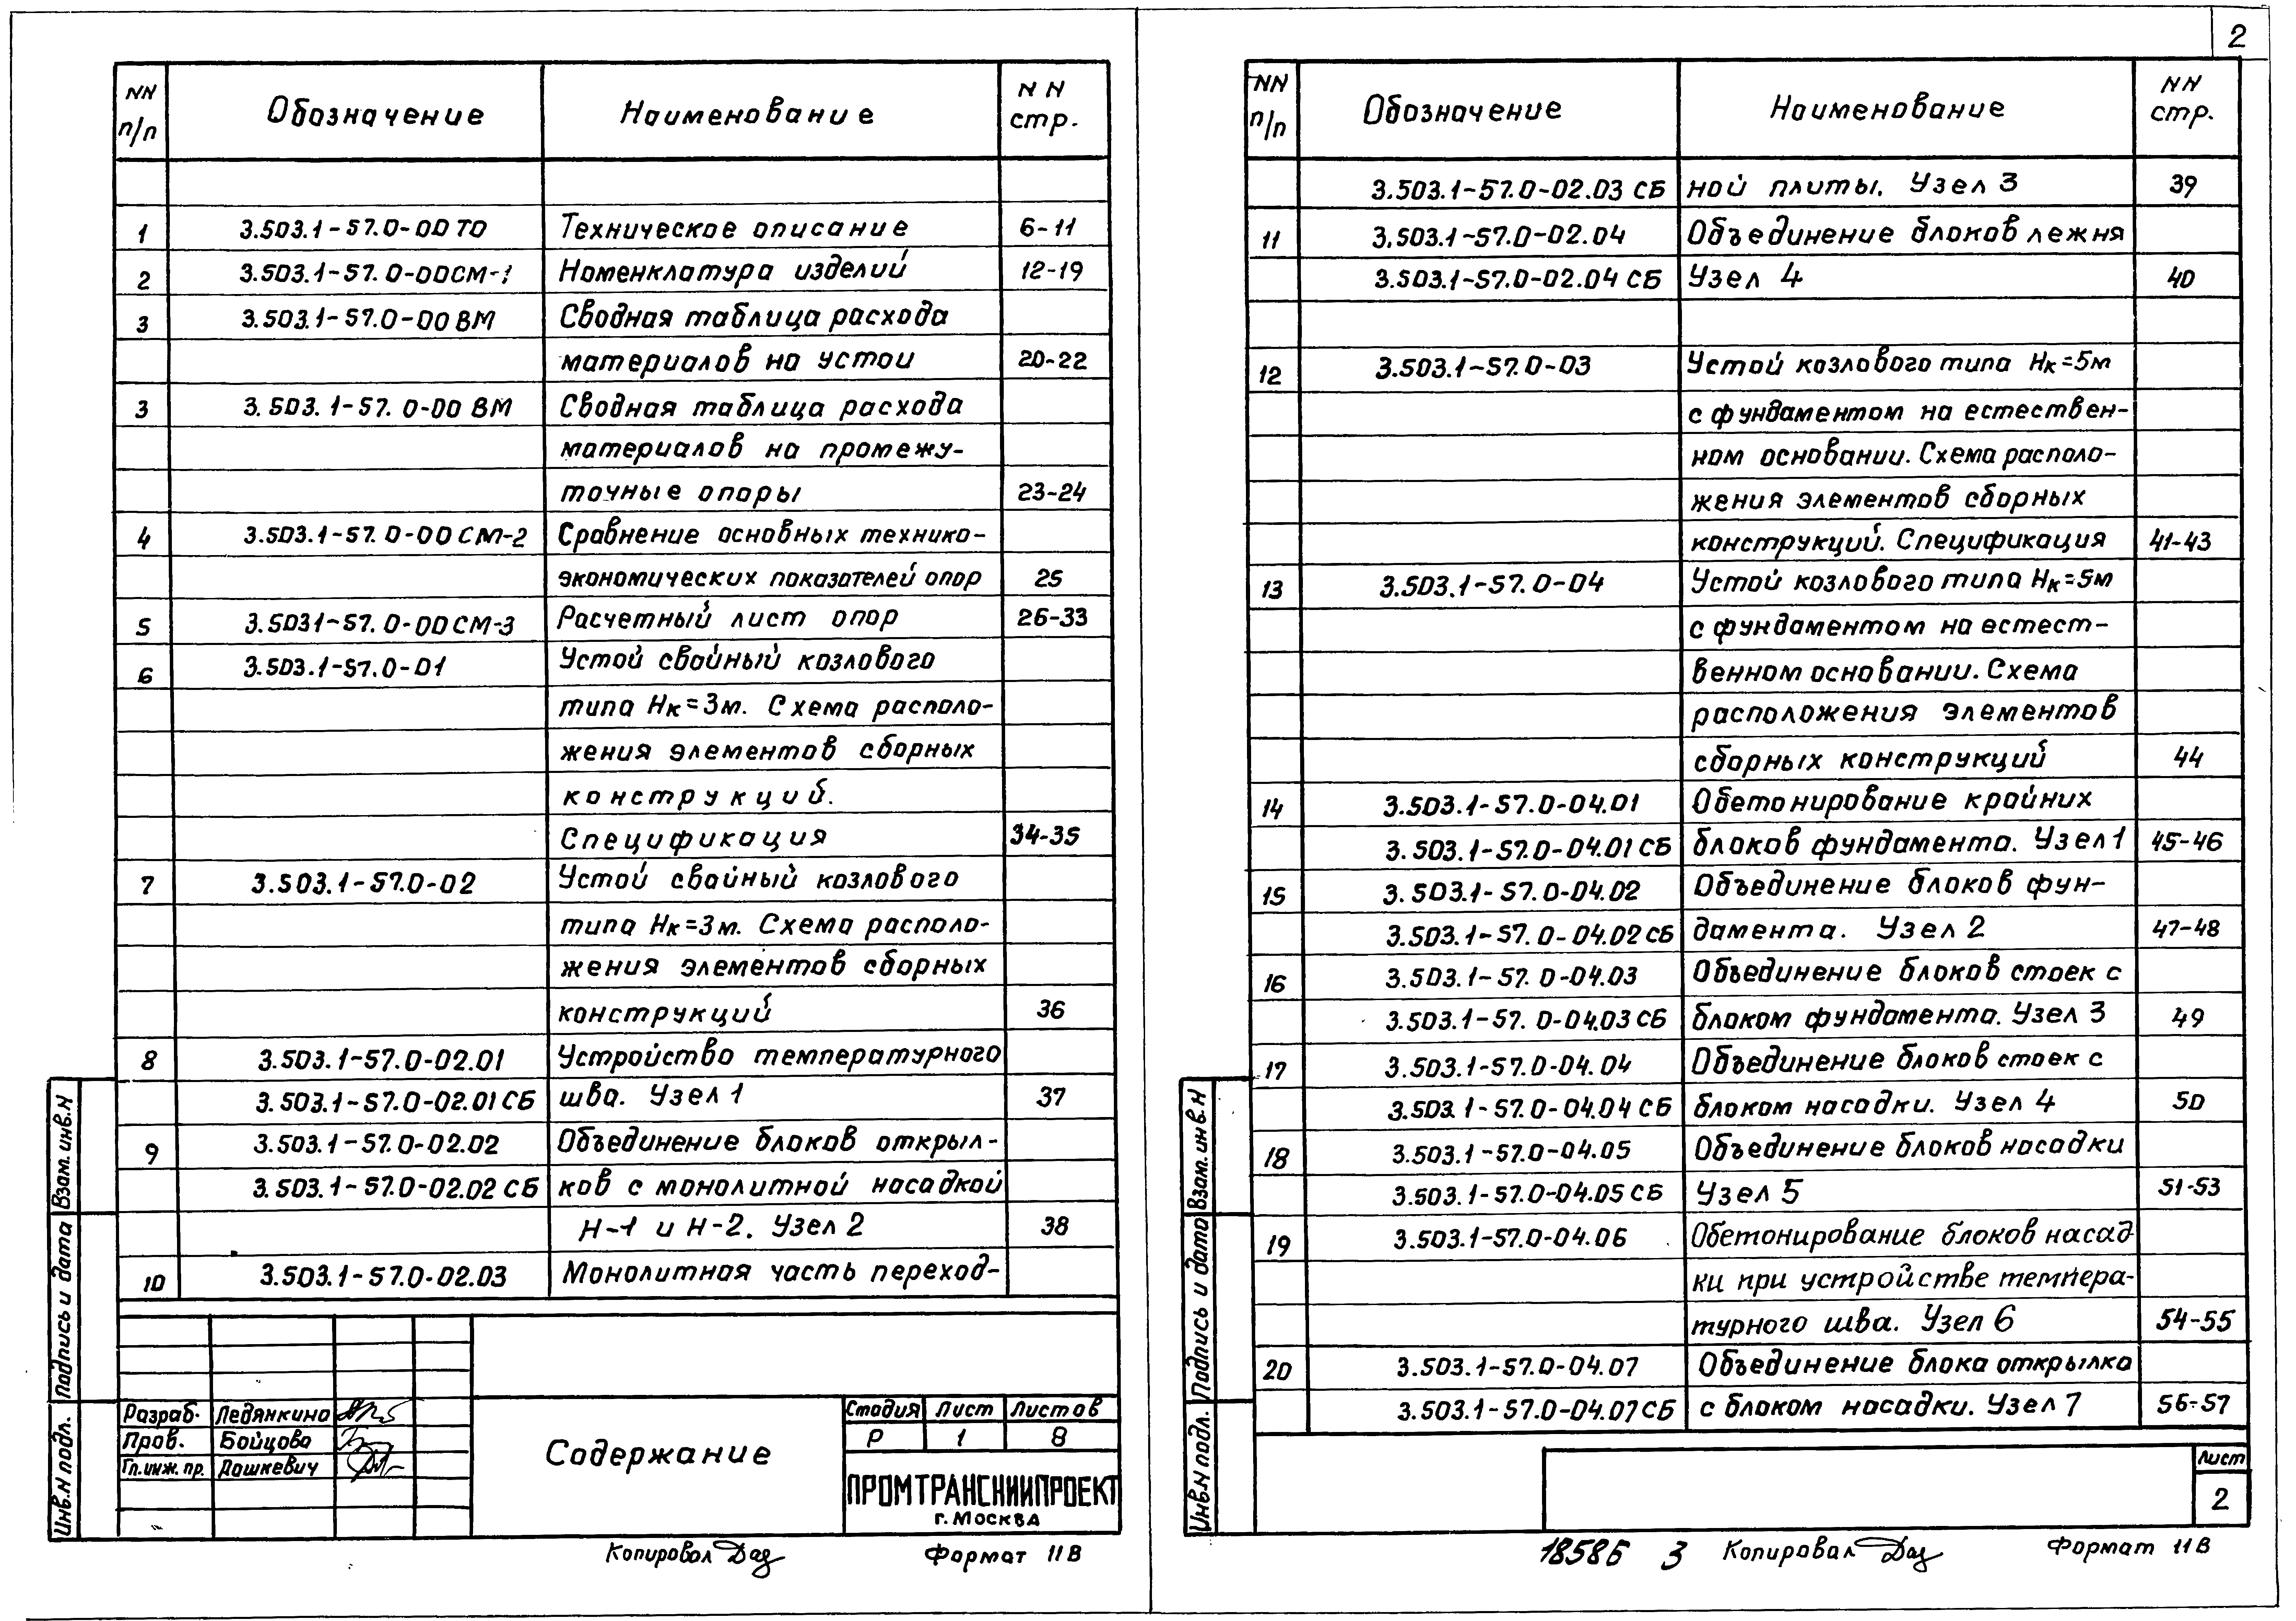 NN п/п Обозначение Наименование NN стр.
1 3.503.1-57.0-00 ТО Техническое описание 6-11
2 3.503.1-57.0-00СМ-1 Номенклатура изделий 12-19
3 3.503.1-57.0-00 ВМ Сводная таблица расхода
материалов на устои 20-22
3 3.503.1-57.0-00 ВМ Сводная таблица расхода
материалов на промежу-
точные опоры 23-24
4 3.503.1-57.0-00 СМ-2 Сравнение основных технико-
экономических показателей опор 25
5 3.5031-57.0-00СМ-3 Расчетный лист опор 26-33
6 3.503.1-57.0-01 Устой свайный козлового
типа Нк=3м. Схема располо-
жения элементов сборных
конструкций.
Спецификация 34-35
7 3.503.1-57.0-02 Устой свайный козлового
типа Нк=3м. Схема располо-
жения элементов сборных
конструкций 36
8 3.503.1-57.0-02.01 Устройство температурного
3.503.1-57.0-02.01 СБ шва. Узел 1 37
9 3.503.1-57.0-02.02 Объединение блоков открыл-
3.503.1-57.0-02.02 СБ ков с монолитной насадкой
Н-1 и Н-2. Узел 2 38
10 3.503.1-57.0-02.03 Монолитная часть переход-
Взам. инв. N
Подпись и дата
Инв. N подл.
Разраб. Ледянкина
Пров. Бойцова
Гл. инж. пр. Дашкевич
Содержание
Стадия Лист Листов
Р 1 8
ПРОМТРАНСНИИПРОЕКТ
г. Москва
Копировал Формат 11В
2
NN п/п Обозначение Наименование NN стр.
3.503.1-57.0-02.03 СБ ной плиты. Узел 3 39
11 3.503.1-57.0-02.04 Объединение блоков лежня
3.503.1-57.0-02.04 СБ Узел 4 40
12 3.503.1-57.0-03 Устой козлового типа Нк=5м
с фундаментом на естествен-
ном основании. Схема располо-
жения элементов сборных
конструкций. Спецификация 41-43
13 3.503.1-57.0-04 Устой козлового типа Нк=5м
с фундаментом на естест-
венном основании. Схема
расположения элементов
сборных конструкций 44
14 3.503.1-57.0-04.01 Обетонирование крайних
3.503.1-57.0-04.01 СБ блоков фундамента. Узел 1 45-46
15 3.503.1-57.0-04.02 Объединение блоков фун-
3.503.1-57.0-04.02 СБ дамента. Узел 2 47-48
16 3.503.1-57.0-04.03 Объединение блоков стоек с
3.503.1-57.0-04.03 СБ блоком фундамента. Узел 3 49
17 3.503.1-57.0-04.04 Объединение блоков стоек с
3.503.1-57.0-04.04 СБ блоком насадки. Узел 4 50
18 3.503.1-57.0-04.05 Объединение блоков насадки
3.503.1-57.0-04.05 СБ Узел 5 51-53
19 3.503.1-57.0-04.06 Обетонирование блоков насад
ки при устройстве темпера-
турного шва. Узел 6 54-55
20 3.503.1-57.0-04.07 Объединение блока открылка
3.503.1-57.0-04.07 СБ с блоком насадки. Узел 7 56-57
Взам. инв. N
Подпись и дата
Инв. N подл.
Лист
2
18586 3 Копировал Формат 11В